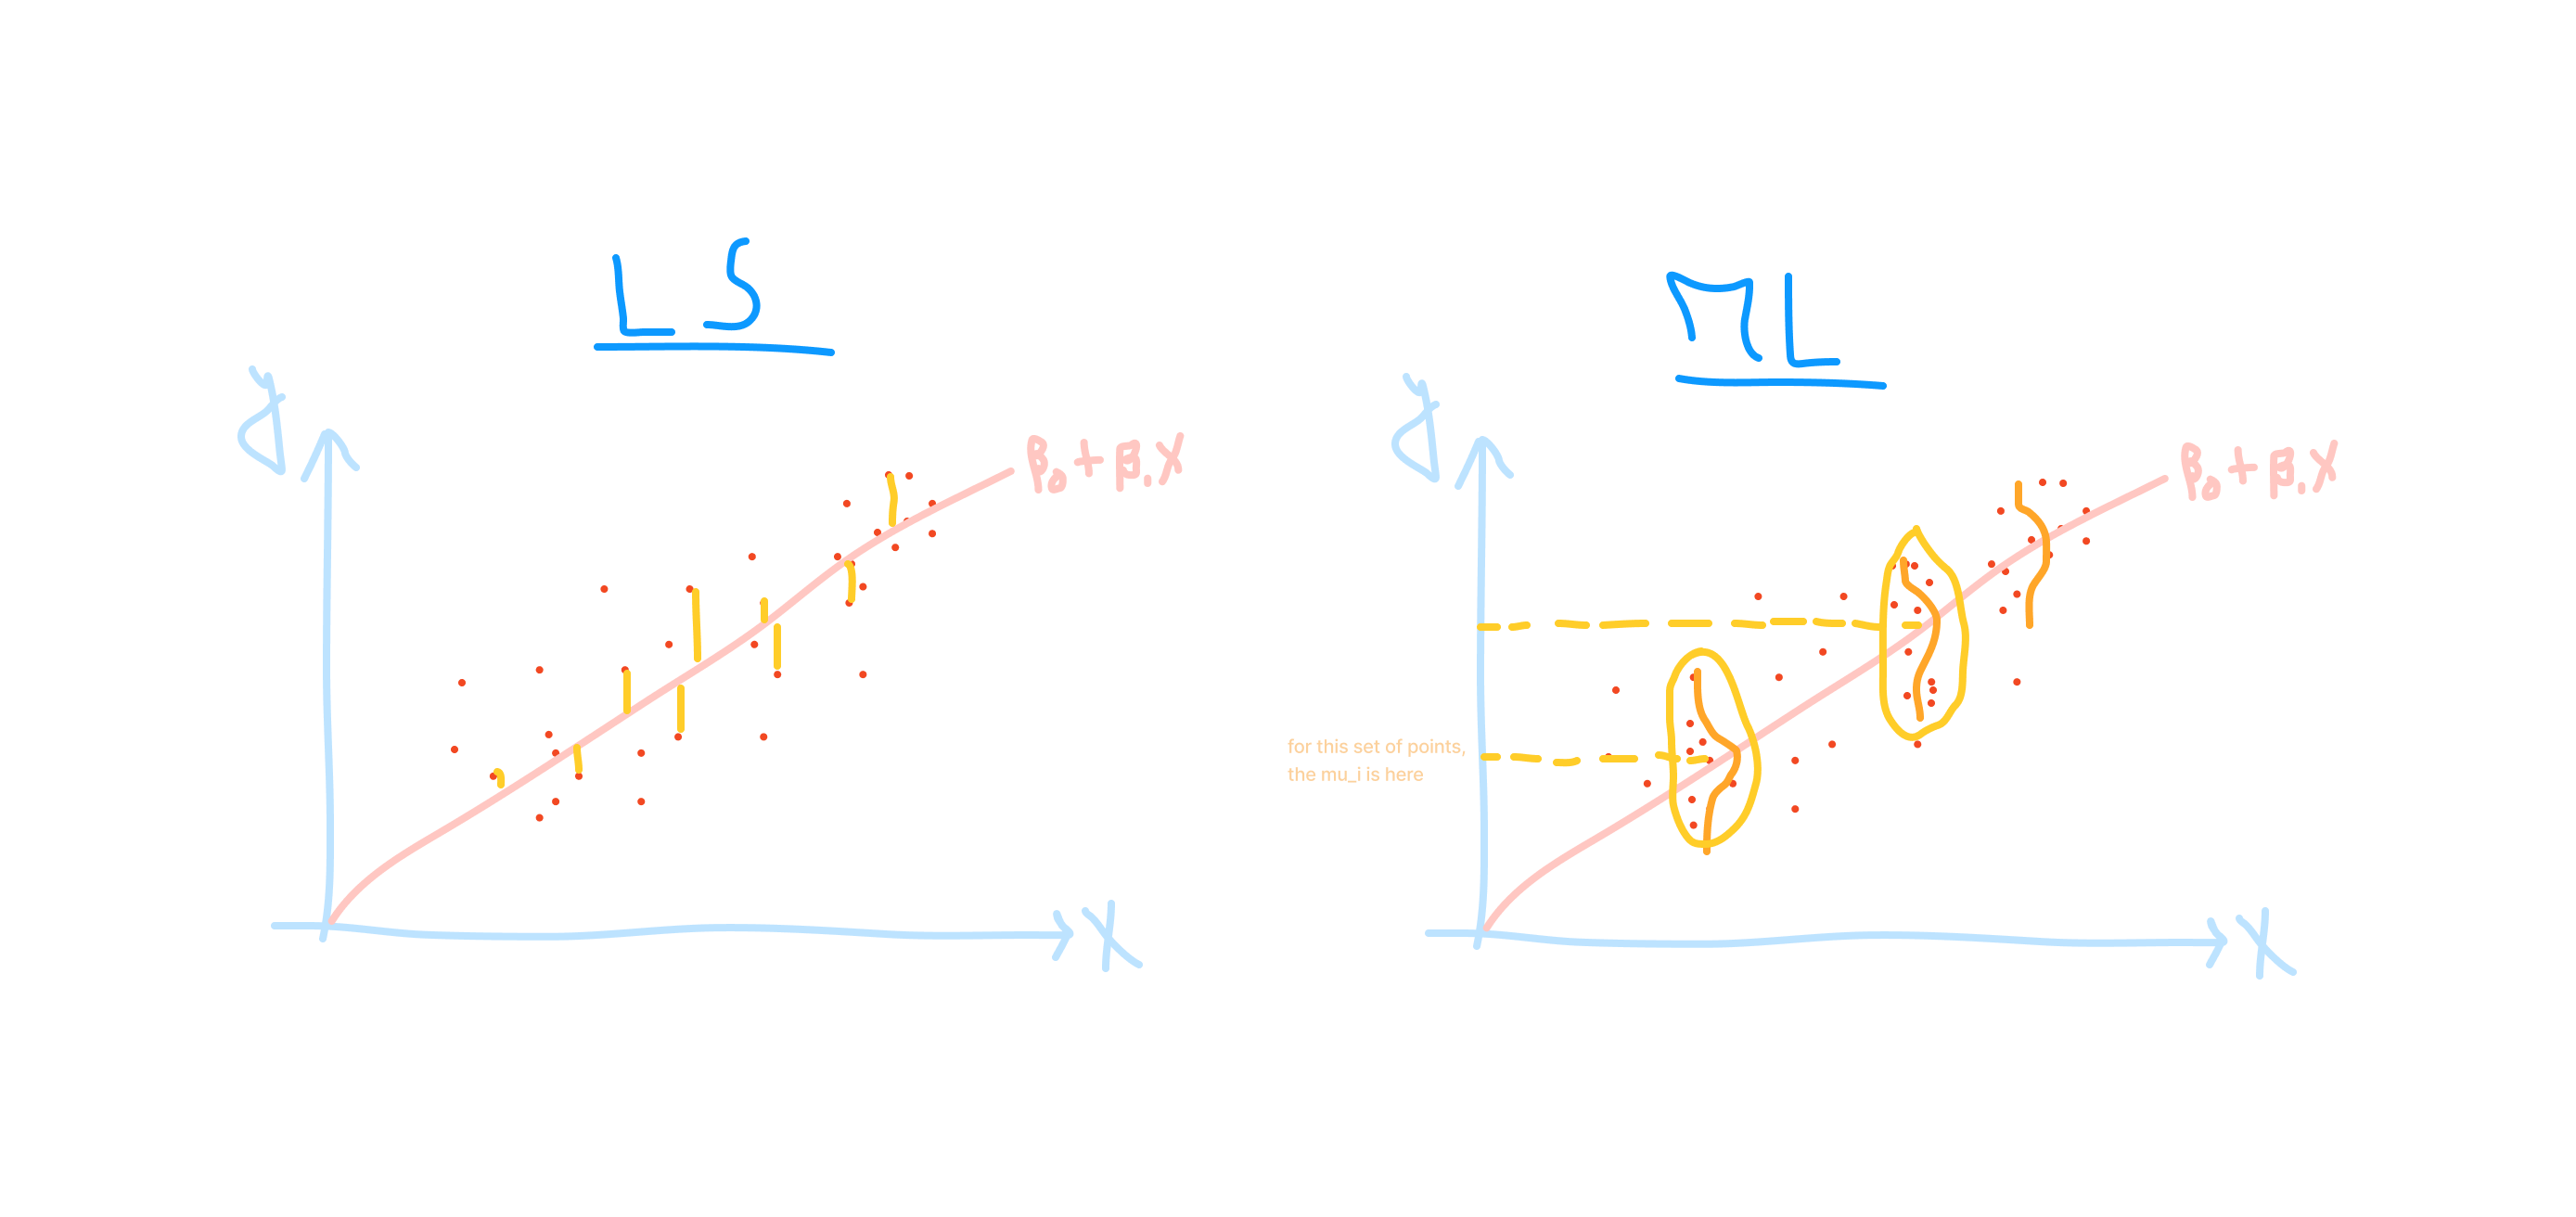 LS
y
β₀+β₁X
X
ML
y
β₀+β₁X
for this set of points,
the mu_i is here
X